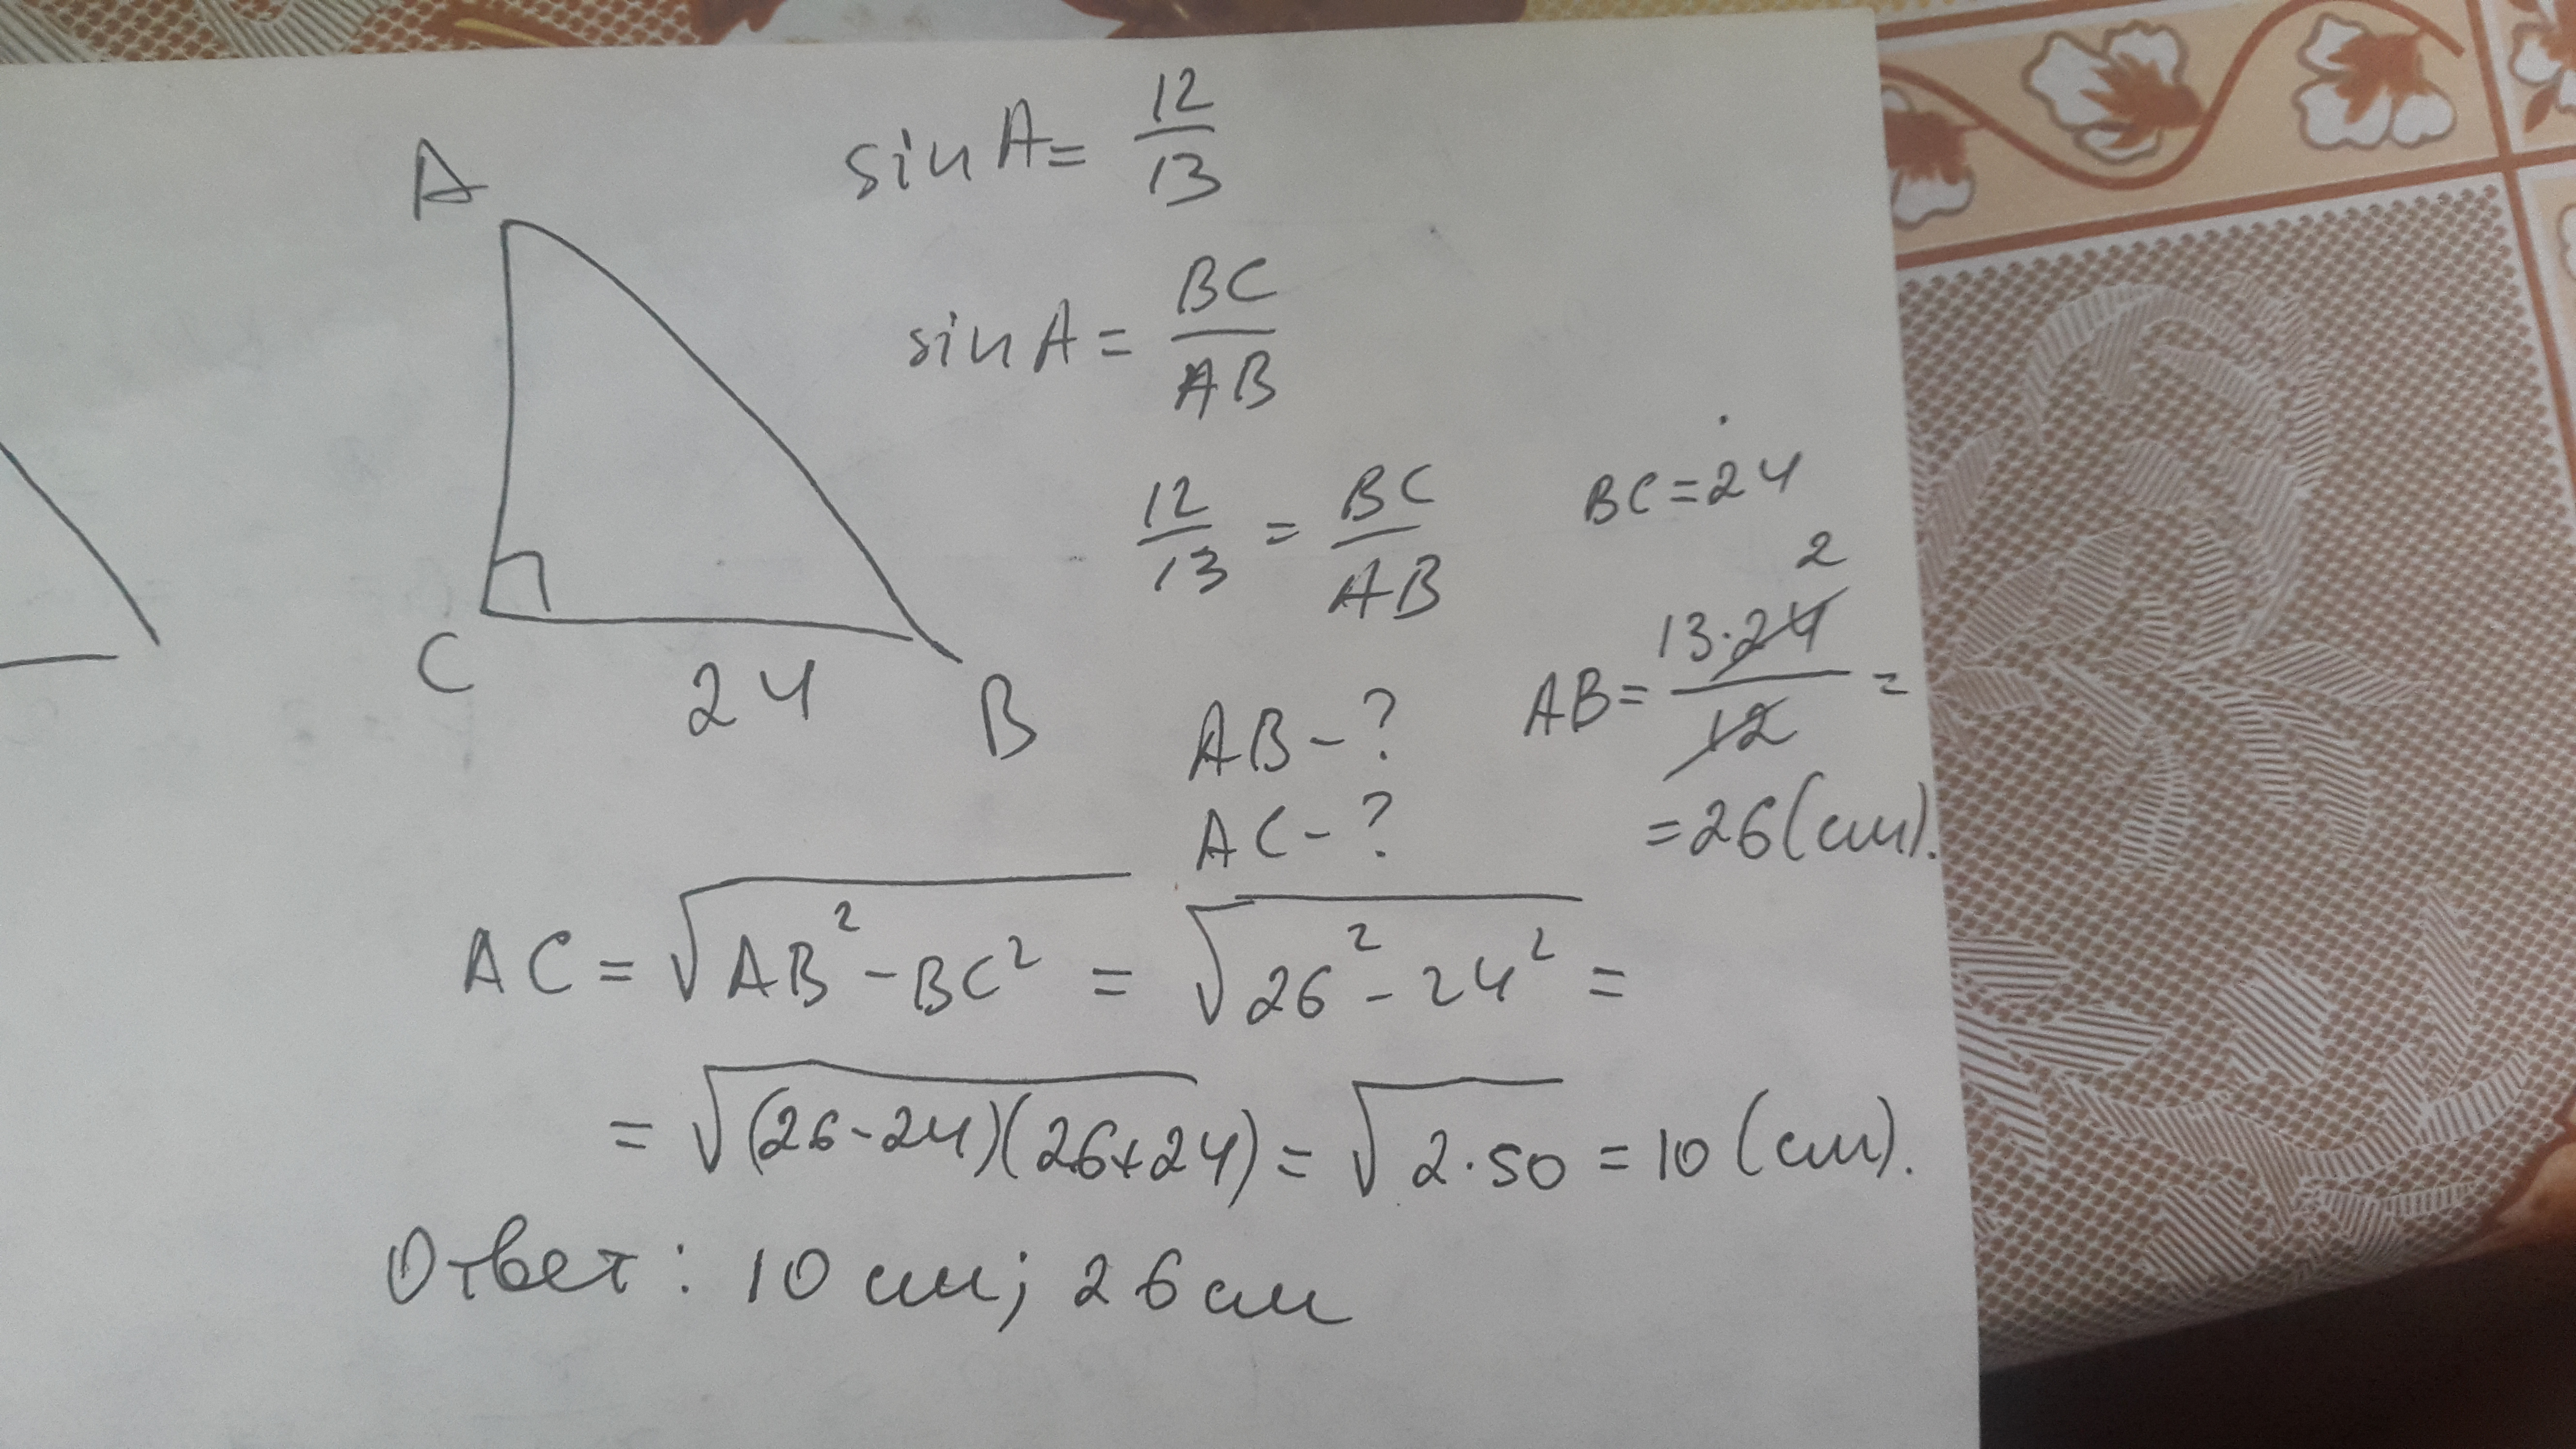 sin A = 12/13
A
sin A = BC/AB
12/13 = BC/AB
BC = 24
C
24
B
AB - ?
AB = 13·24/12 =
2
AC - ?
= 26 (см).
AC = √AB² - BC² = √26² - 24² =
= √(26-24)(26+24) = √2·50 = 10 (см).
Ответ: 10 см; 26 см